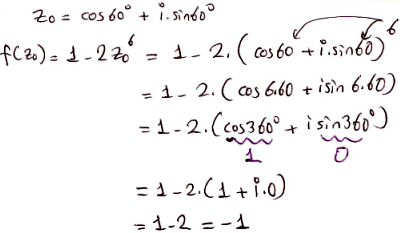 z₀ = cos60° + i.sin60°
f(z₀) = 1 - 2z₀⁶ = 1 - 2.(cos60 + i.sin60)⁶
= 1 - 2.(cos6.60 + isin6.60)
= 1 - 2.(cos360° + isin360°)
1 0
= 1 - 2.(1 + i.0)
= 1 - 2 = -1